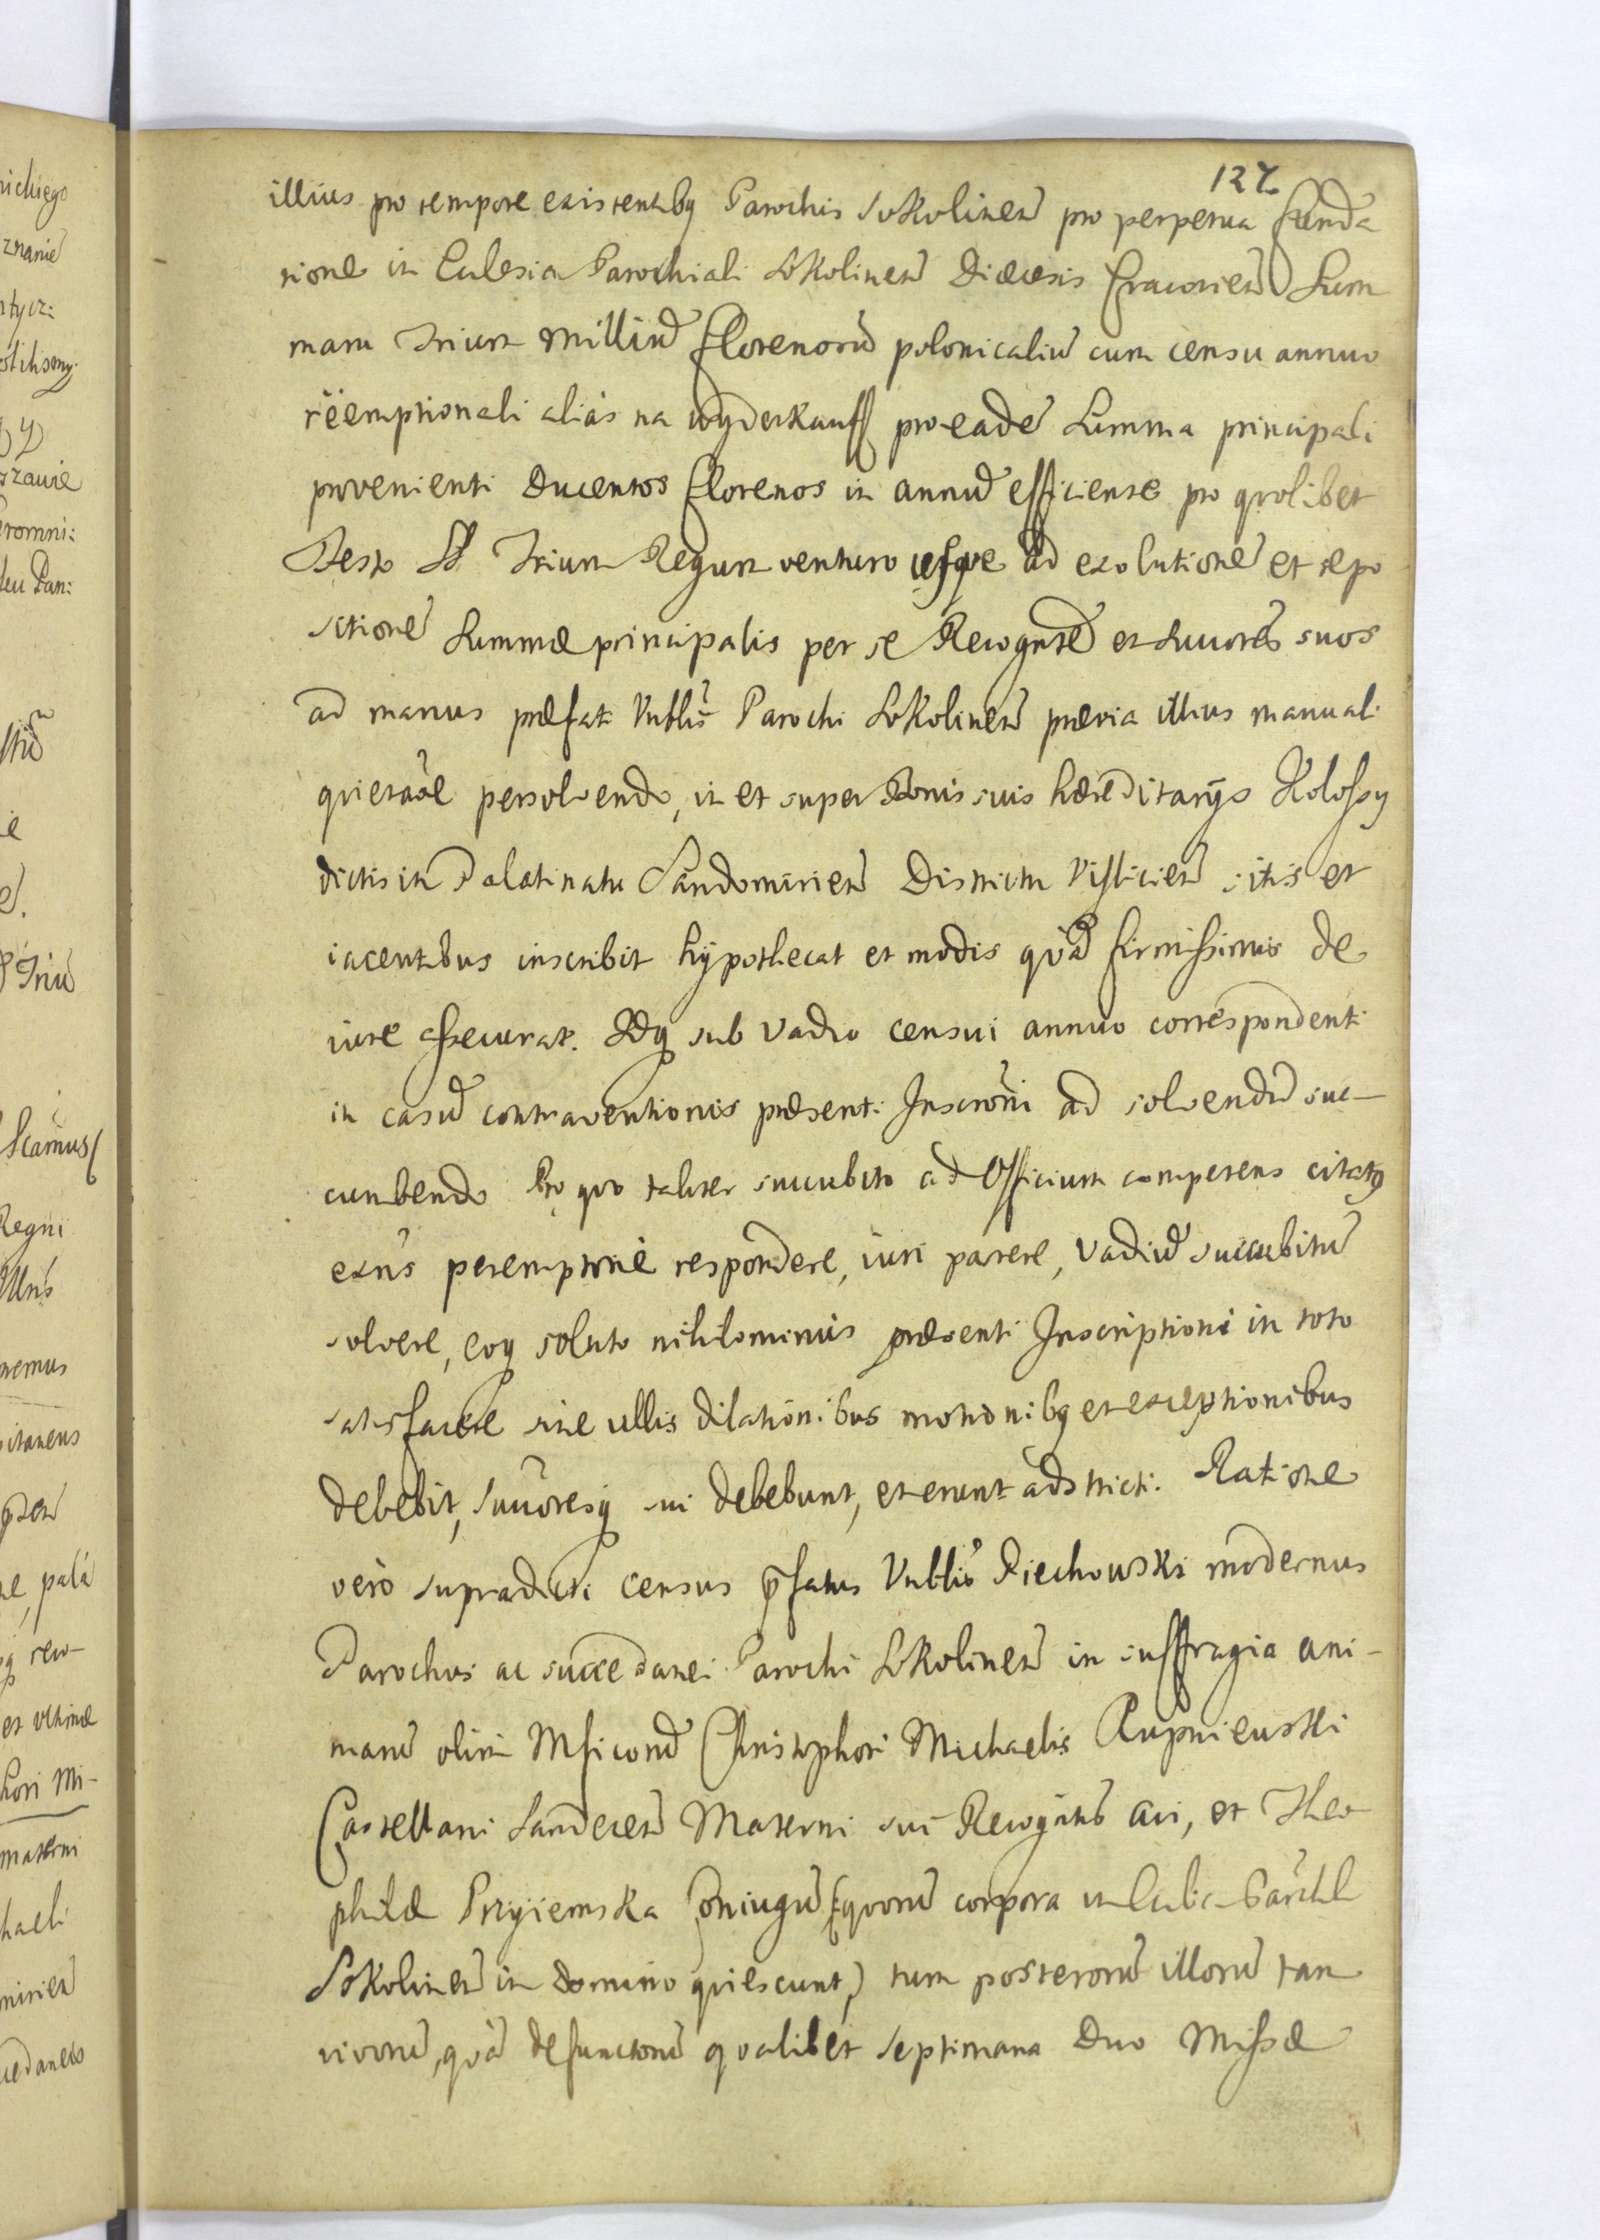 127.
illius pro tempore existentibq Parochis Sokolinen pro perpetua funda
tione in Eclesia Parochiali Sokolinen Diœcesis Cracovien Sum
mam Trium Milliũ florenorũ polonicaliũ cum censu annuo
reemptionali aliàs na wyderkauff pro eadẽ Summa principali
provenienti Ducentos florenos in annũ efficiente pro qvolibet
Festo SS Trium Regum venturo usqve ad exolutionẽ et repo
sitionẽ Summæ principalis per se Recognteḿ et Succores suos
ad manus præfati Vnblis Parochi Sokolinen prævia illius manuali
qvietãoe persolvendo, in et super Bonis suis hæreditarijs Kolossy
dictis in Palatinatu Sandomirien Districtu Vislicien sitis et
iacentibus inscribit hypothecat et modis qvã firmissimis de
iure assecurat. Idq sub vadio censui annuo correspondenti
in casũ contraventionis præsenti Inscrõni ad solvendũ suc-
cumbendo Pro qvo taliter succubito ad Officium competens citatq
exñs peremptoriè respondere, iuri parere, vadiũ succubitũ
solvere, eoq soluto nihilominus præsenti Inscriptioni in toto
satisfacere sine ullis dilationibus motionibq et exceptionibus
debebit, Succoresq sui debebunt, et erunt adstricti. Ratione
verò supradicti census pfatus Vnblis Piechowski modernus
Parochus ac succedanei Parochi Sokolinen in suffragia ani-
marũ olim Msicorũ Christophori Michaelis Rupniewski
Castellani Sandecen Materni sui Recogntis avi, et Theo
philæ Przyiemska Coniugũ (qvorũ corpora in Eccla Parchli
Sokolinen in domino qviescunt) tum posterorũ illorũ tam
vivorũ, qvã defunctorũ qvalibet septimana Duo Missæ